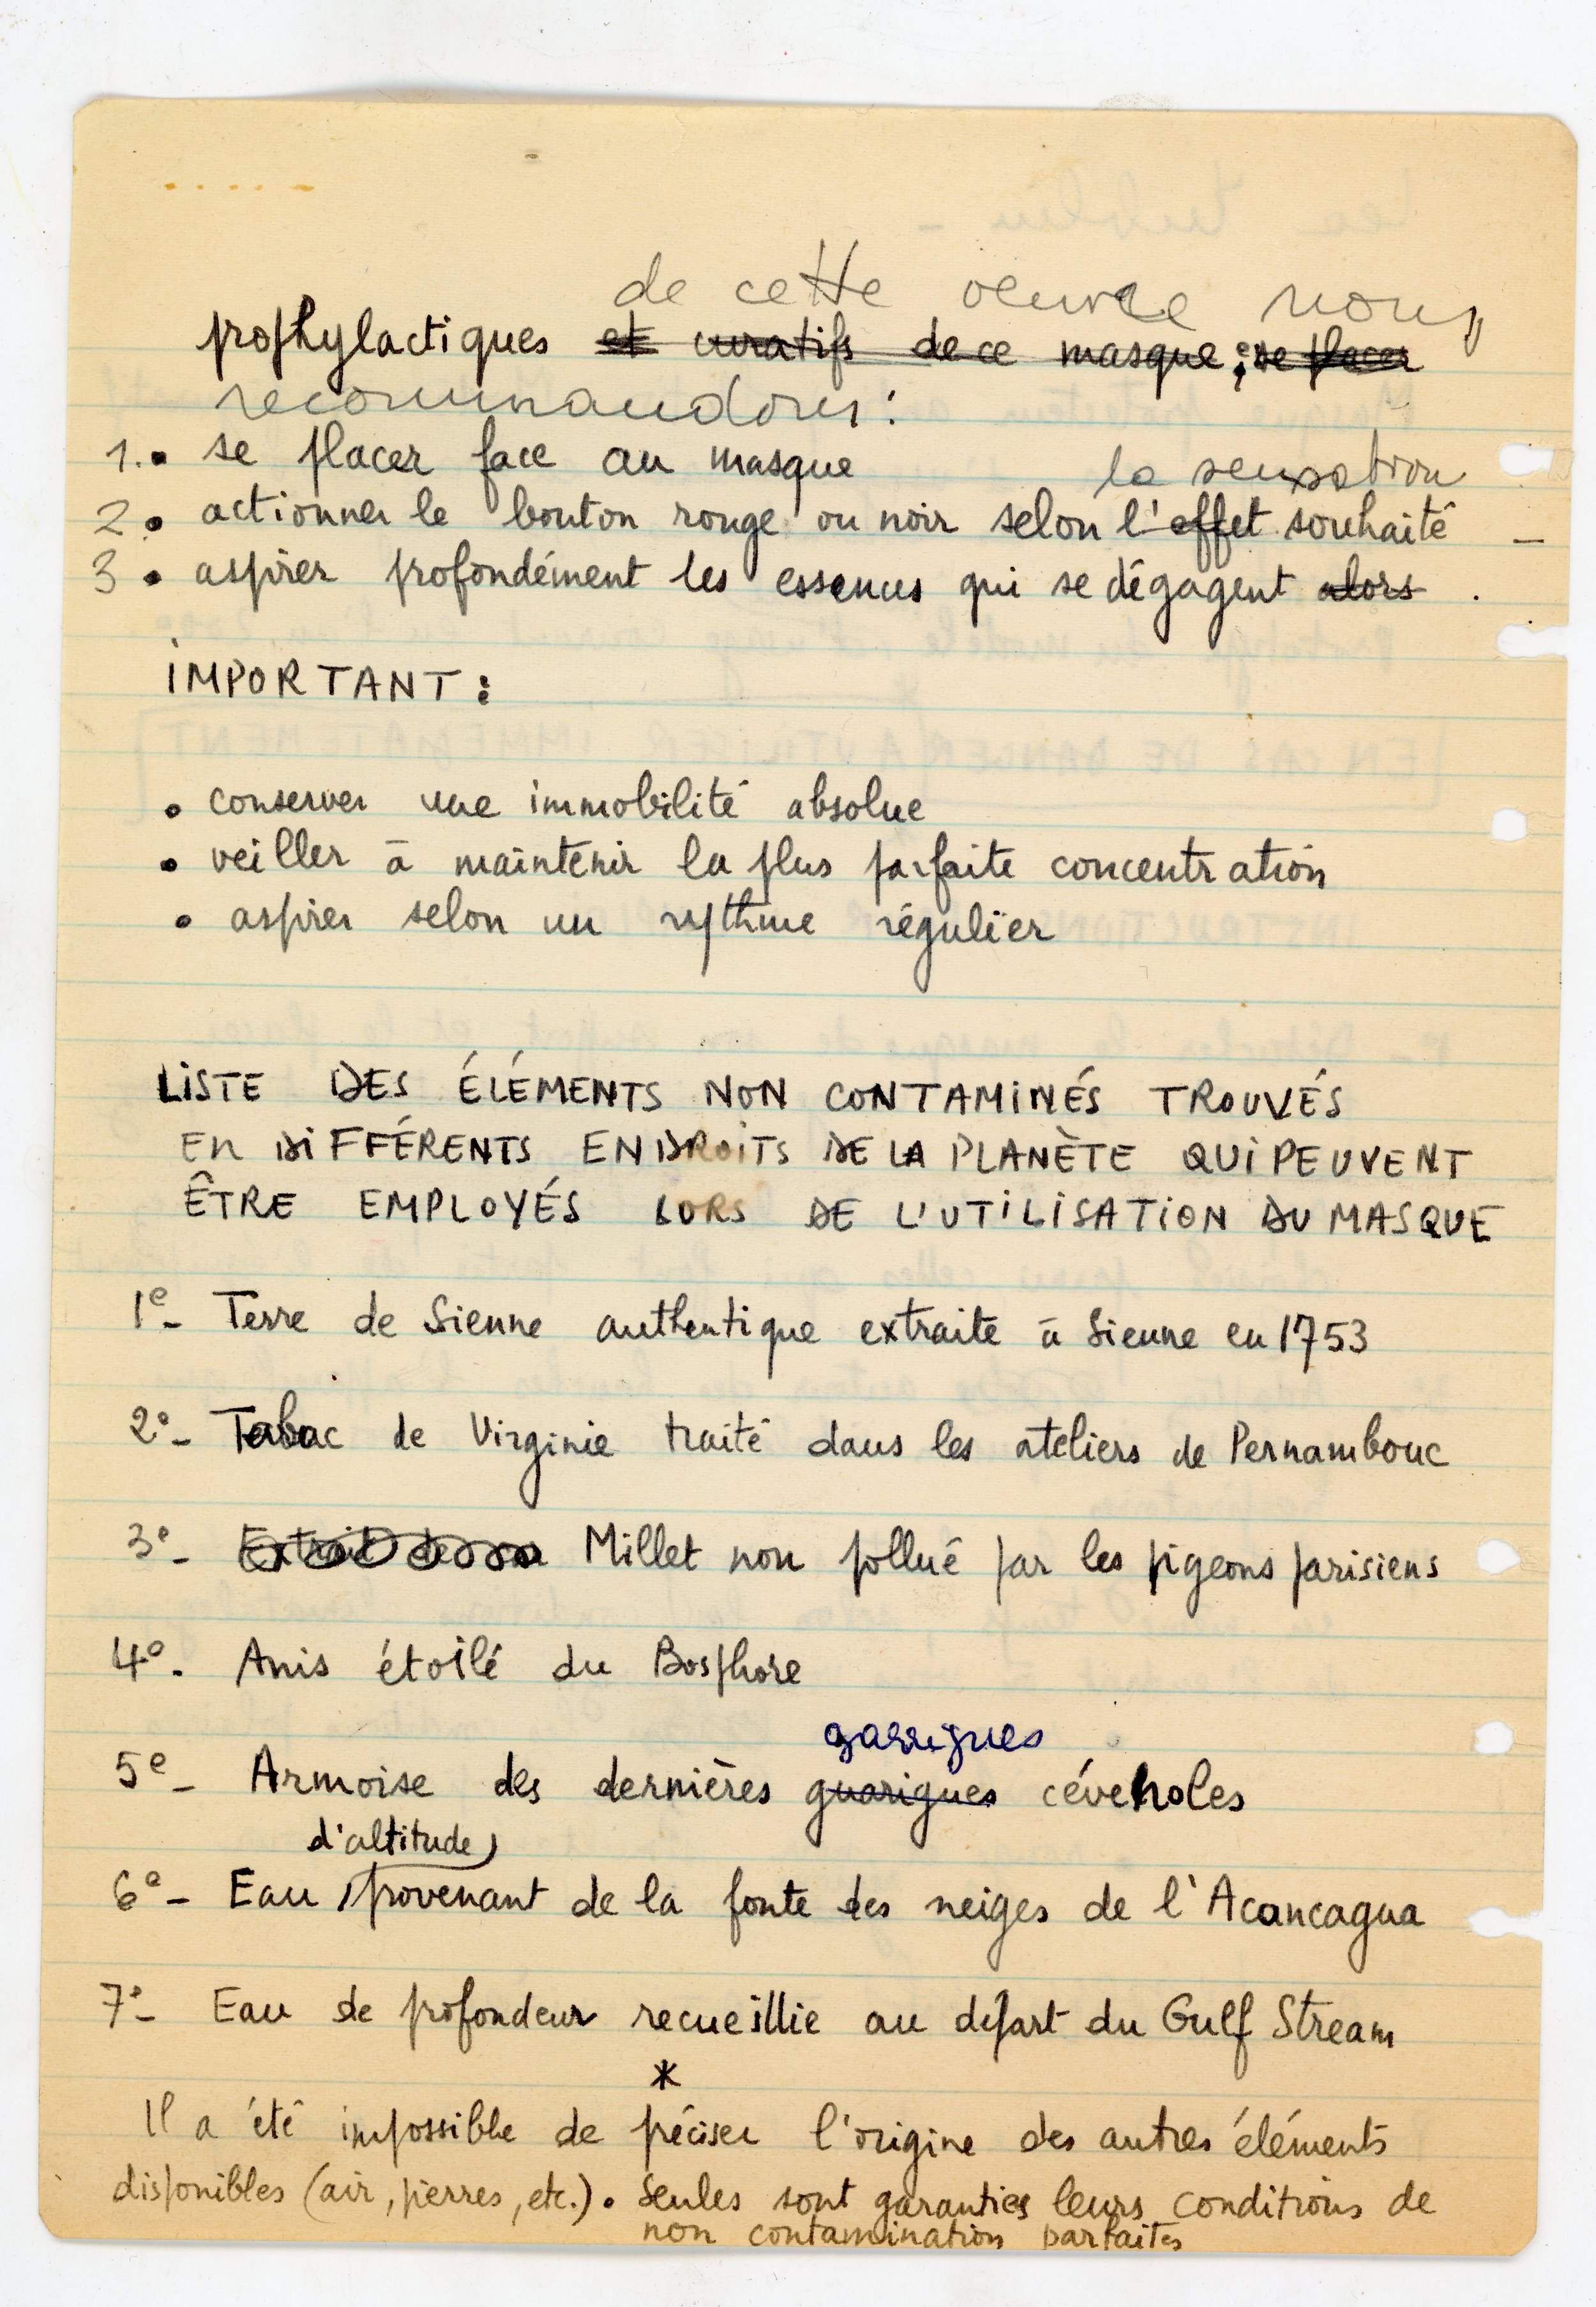 de cette oeuvre nous
prophylactiques et curatifs de ce masque, se placer
recommandons :
1. • se placer face au masque
la sensation
2. • actionner le bouton rouge ou noir selon l'effet souhaité –
3 • aspirer profondément les essences qui se dégagent alors .
IMPORTANT :
• conserver une immobilité absolue
• veiller à maintenir la plus parfaite concentration
• aspirer selon un rythme régulier
LISTE DES ÉLÉMENTS NON CONTAMINÉS TROUVÉS
EN DIFFÉRENTS ENDROITS DE LA PLANÈTE QUI PEUVENT
ÊTRE EMPLOYÉS LORS DE L'UTILISATION DU MASQUE
1e- Terre de Sienne authentique extraite à Sienne en 1753
2°- Tabac de Virginie traité dans les ateliers de Pernambouc
3°- Extrait de Millet non pollué par les pigeons parisiens
4°. Anis étoilé du Bosphore
garrigues
5e- Armoise des dernières guarigues cévenoles
d'altitude
6°- Eau, provenant de la fonte des neiges de l'Acancagua
7°- Eau de profondeur recueillie au départ du Gulf Stream
*
Il a été impossible de préciser l'origine des autres éléments
disponibles (air, pierres, etc.). Seules sont garanties leurs conditions de
non contamination parfaites